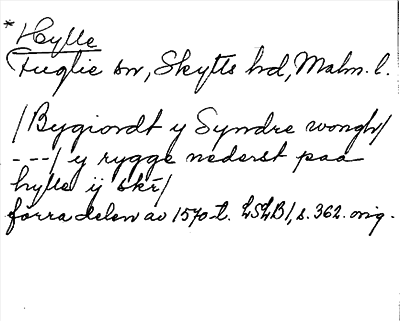 * Hylle
Fuglie sn, Skytts hd, Malm. l.
/Bygiordt y Syndre wongh/
---/ y rygge nederst paa
hylle ij skr̄/
förra delen av 1570-t. LSLB 1, s. 362. orig.